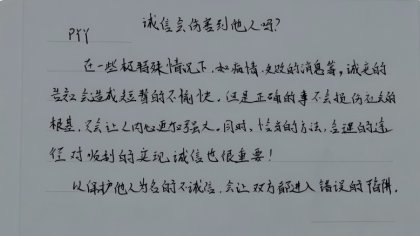 诚信会伤害到他人吗?
PYY
在一些极特殊情况下,如病情、失败的消息等,诚实的
告知会造成短暂的不愉快。但是正确的事不会损伤社会的
根基,只会让人内心更加强大。同时,恰当的方法、合理的途
径对顺利的实现诚信也很重要!
以保护他人为名的不诚信,会让双方都进入错误的陷阱.